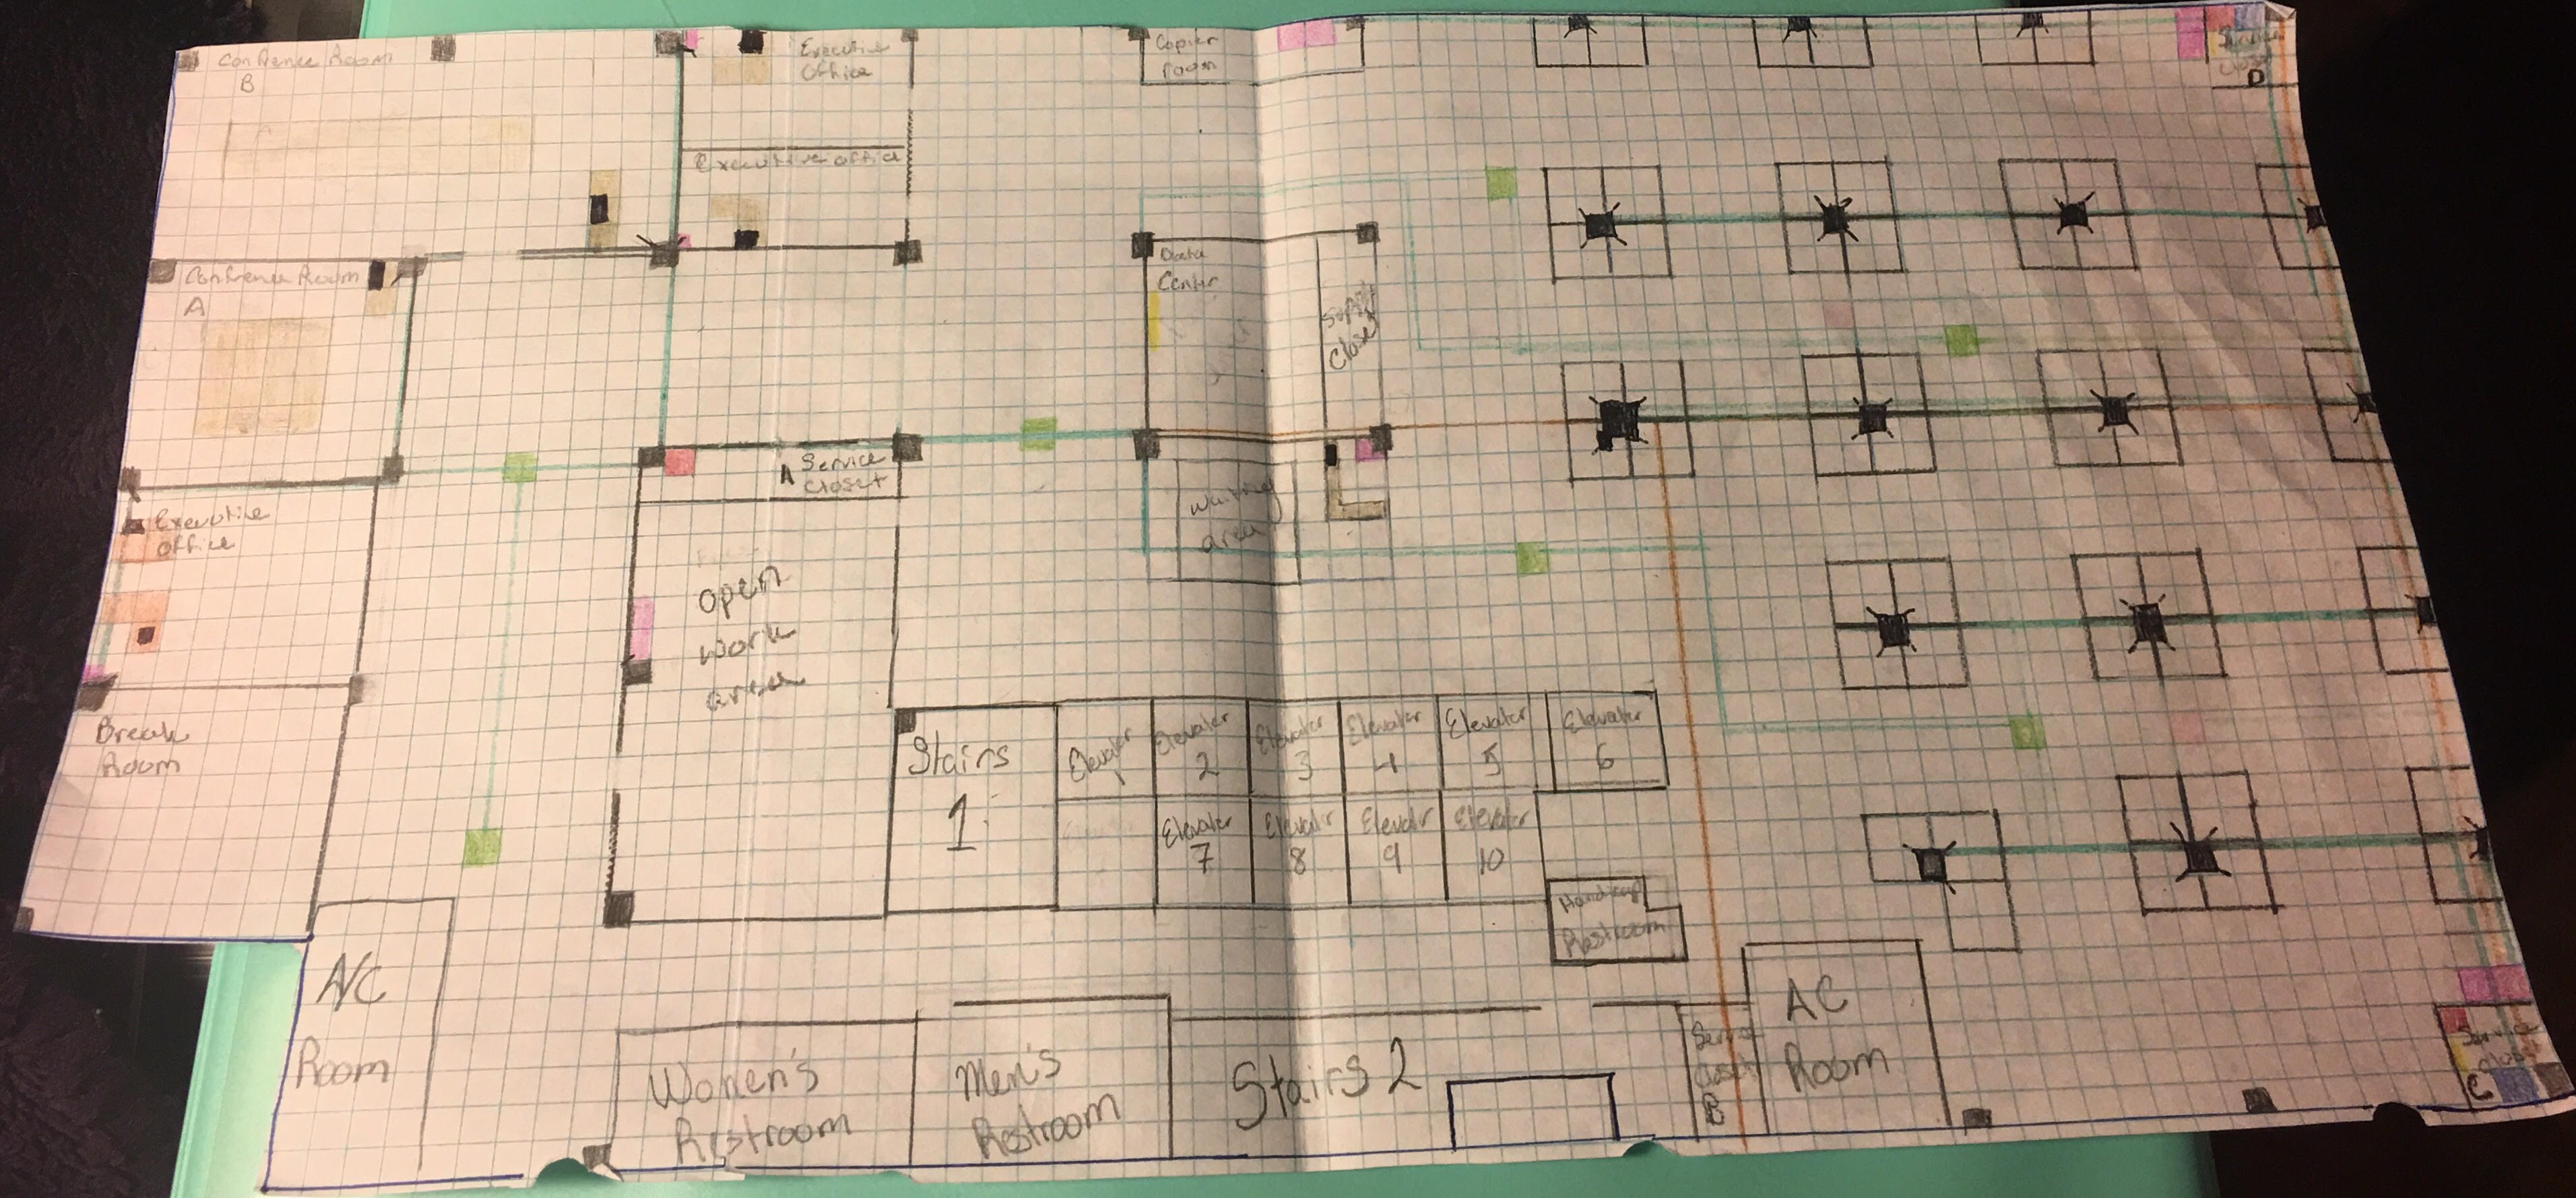 Confrence Room
B
Executive
Office
Copier
room
D
Executive office
Confrence Room
A
Data
Center
Supply
Closet
A Service
Closet
Executive
office
waiting
area
open
work
area
Break
Room
Stairs
1
Elevator
1
Elevater
2
Elevater
3
Elevater
4
Elevater
5
Elevater
6
Elevater
7
Elevater
8
Elevatr
9
Elevater
10
Handicap
Restroom
A/C
Room
Women's
Restroom
Men's
Restroom
Stairs 2
Closet
B
AC
Room
Closet
C